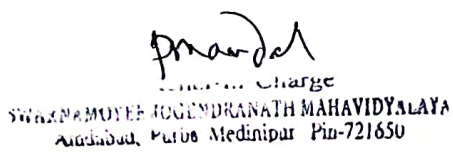 Charge
SWARNAMOYEE JOGENDRANATH MAHAVIDYALAYA
Amdabad, Purba Medinipur Pin-721650